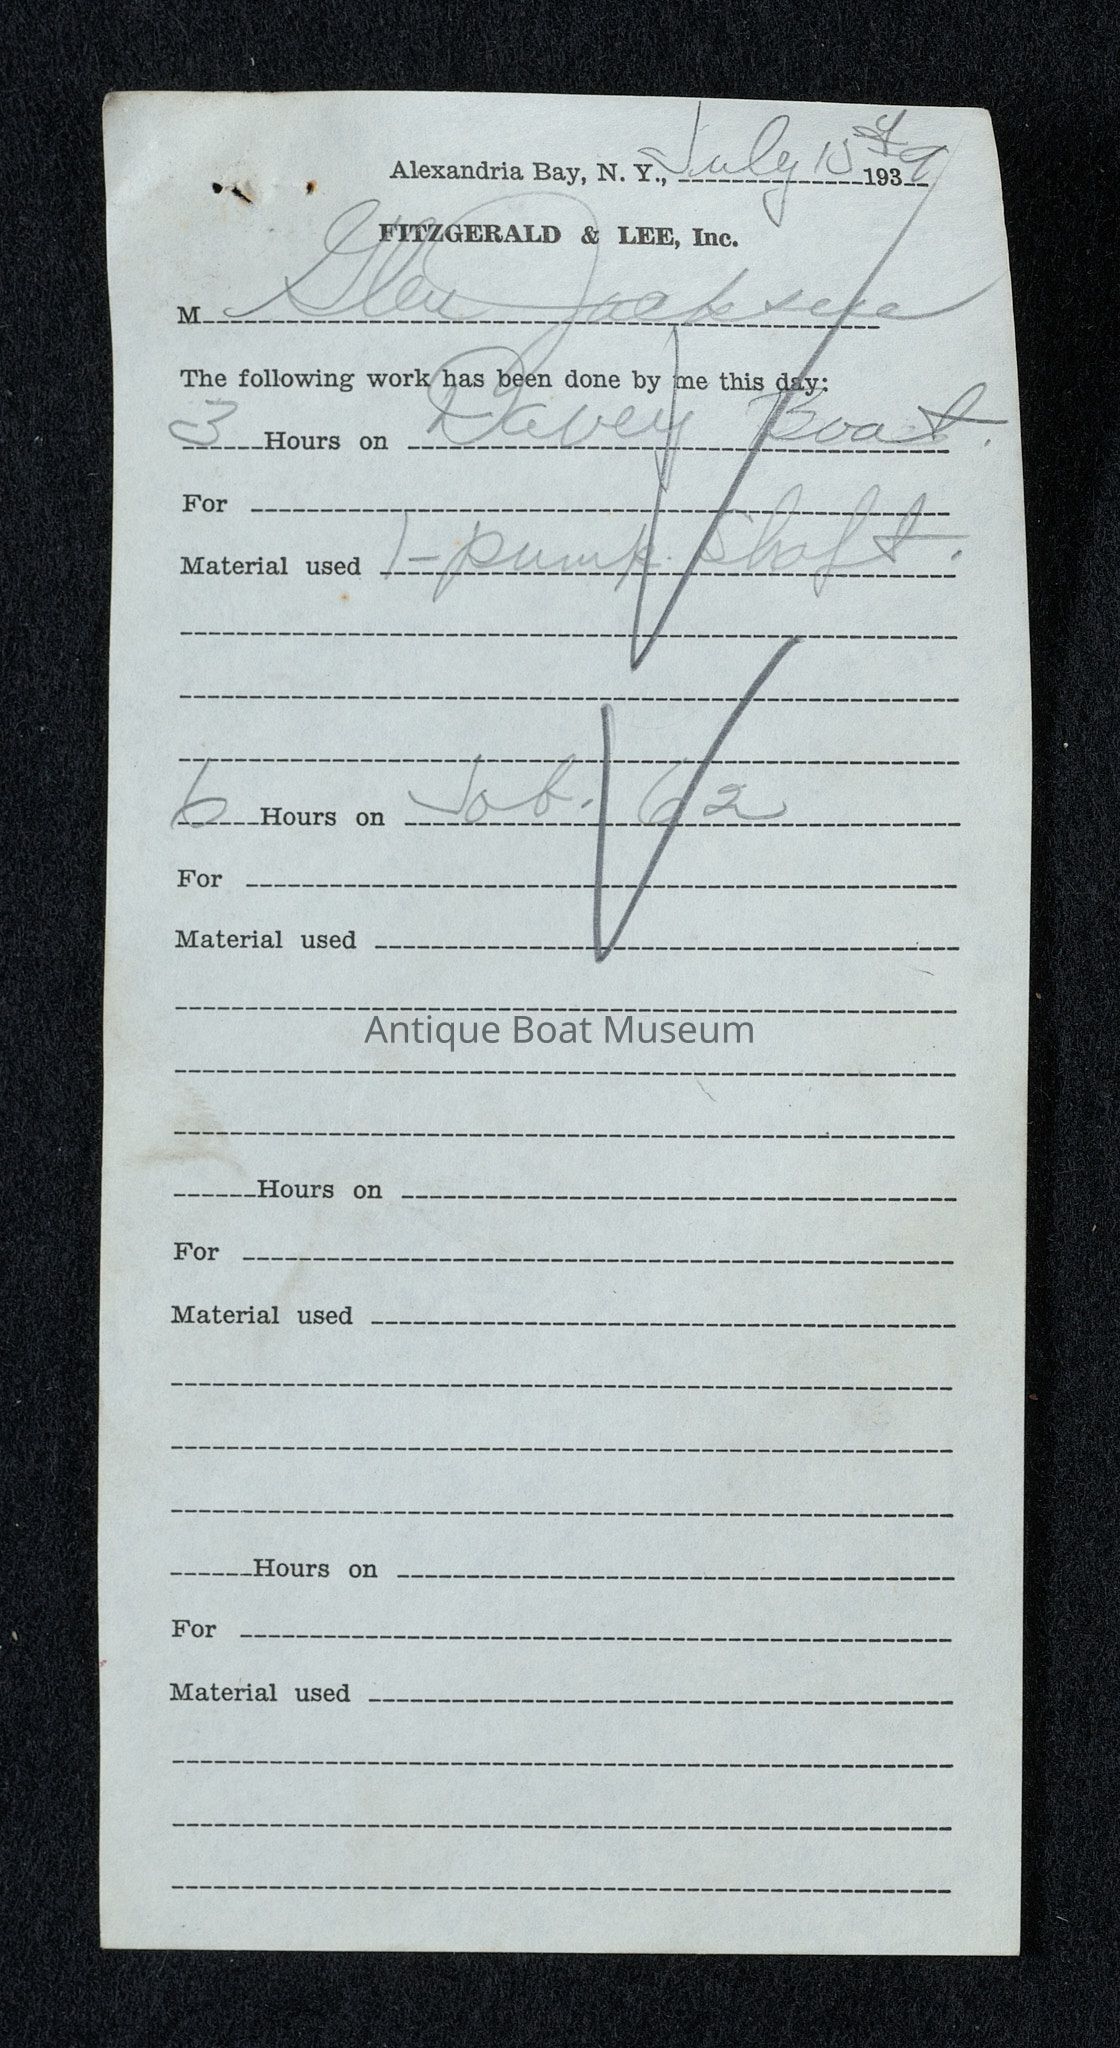 Alexandria Bay, N. Y., July 15th 1939
FITZGERALD & LEE, Inc.
M Glen Jackson
The following work has been done by me this day:
3 Hours on Davey Boat.
For
Material used 1-pump shaft.
6 Hours on Job. 62
For
Material used
Antique Boat Museum
Hours on
For
Material used
Hours on
For
Material used